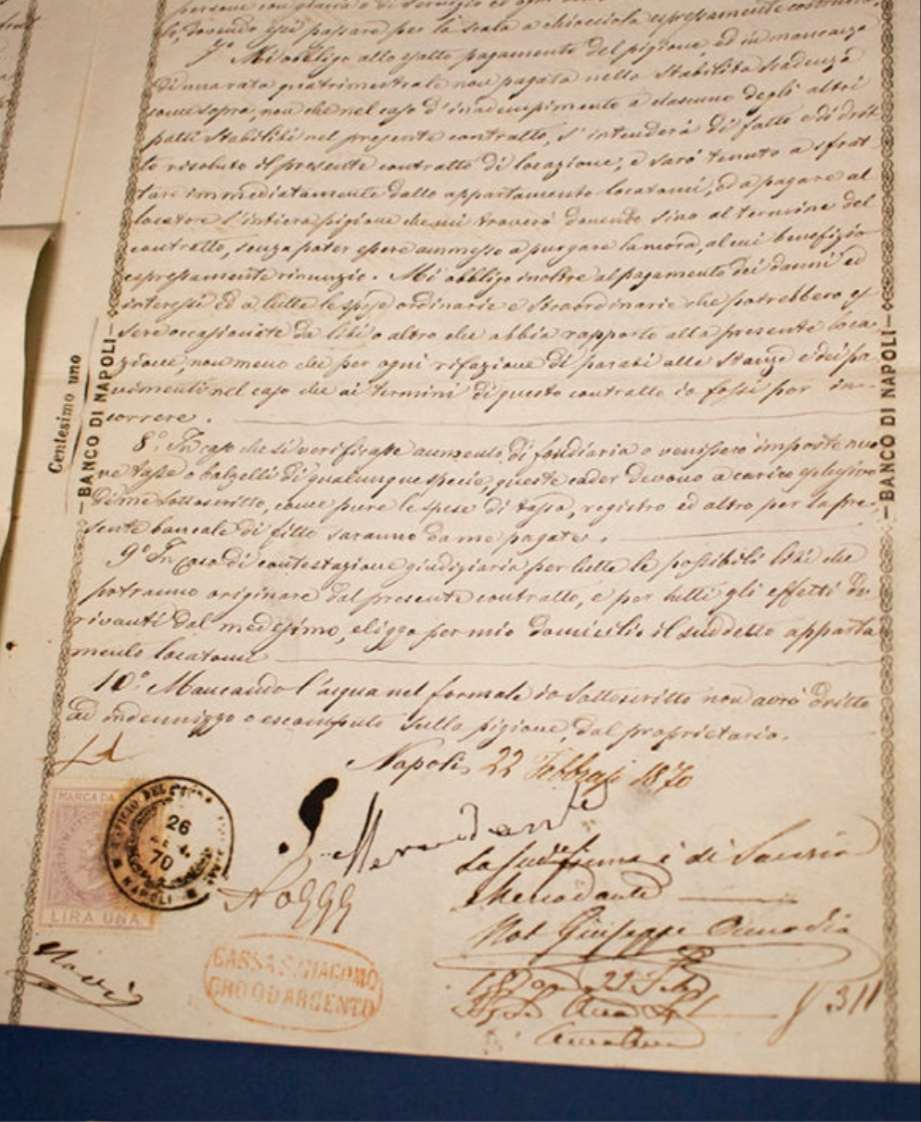 persone con
lo, dovendo essi passare per la scala a chiocciola espressamente costruita.
7.º Mi obbligo allo esatto pagamento del pigione, ed in mancanza
di una rata quatrimestrale non pagata nella stabilita scadenza
come sopra, non che nel caso d'inadempimento a ciascuno degli altri
patti stabiliti nel presente contratto, s'intenderà di fatto e di drit
to risoluto il presente contratto di locazione, e sarò tenuto a sfrat
tare immediatamente dallo appartamento locatomi, ed a pagare al
locatore l'intiera pigione che mi troverò dovendo sino al termine del
contratto, senza poter essere ammesso a purgare la mora, al cui benefizio
espressamente rinunzio. Mi obbligo inoltre al pagamento dei danni ed
interessi ed a tutte le spese ordinarie e straordinarie che potrebbero es
sere occasionate da liti o altro che abbia rapporto alla presente loca-
zione, non meno che per ogni rifazione di parati alle stanze e dei pa-
vimenti nel caso che ai termini di questo contratto io fossi per in-
correre.
8.º In caso che si verificasse aumento di fondiaria o venissero imposte nuo
ve tasse o balzelli di qualunque specie, queste cader devono a carico esclusivo
di me sottoscritto, come pure le spese di tassa, registro ed altro per la pre-
sente bancale di fitto saranno da me pagate.
9.º In caso di contestazione giudiziaria per tutte le possibili liti che
potranno originare dal presente contratto, e per tutti gli effetti de
rivanti dal medesimo, eliggo per mio domicilio il suddetto apparta
mento locatomi
10.º Mancando l'acqua nel formale io sottoscritto non avrò dritto
ad indennizzo o escomputo sulla pigione, dal proprietario.
Napoli, 22 Febbraio 1870
S. Mercadante
La sudetta firma è di Saverio
Mercadante
Not. Giuseppe
311
Centesimo uno
BANCO DI NAPOLI
BANCO DI NAPOLI
MARCA DA
LIRA UNA
26
70
NAPOLI
CASSA S. GIACOMO
CRO O D'ARGENTO